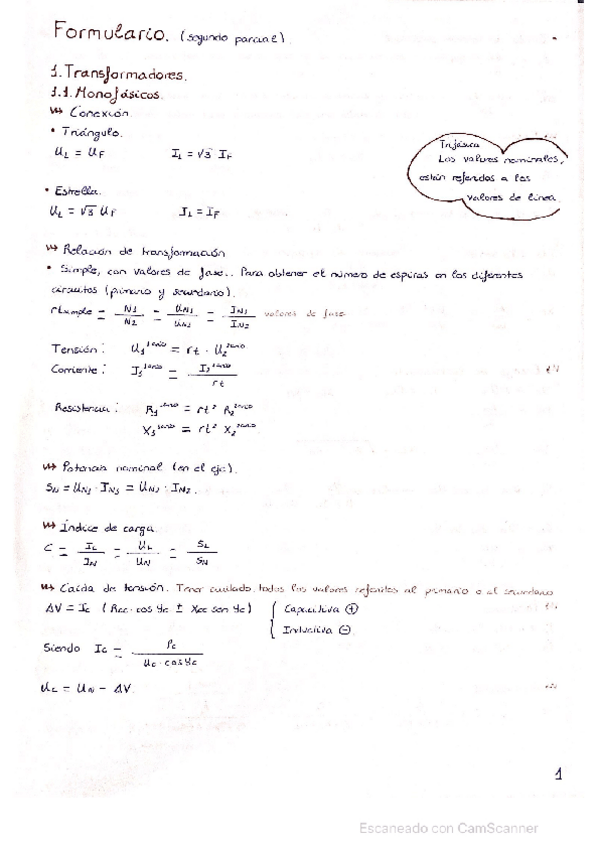 Formulario. (segundo parcial).
1. Transformadores.
1.1. Monofásicos.
↭ Conexión.
• Triángulo.
UL = UF IL = √3 IF
Trifásica
Los valores nominales,
están referidos a los
valores de línea.
• Estrella.
UL = √3 UF IL = IF
↭ Relación de transformación
• Simple, con valores de fase.. Para obtener el número de espiras en los diferentes
circuitos (primario y secundario).
rt simple = N1/N2 = UN1/UN2 = IN2/IN2 valores de fase
Tensión: U1 = rt · U2
Corriente: I1 = I2 / rt
Resistencia: R1 = rt² R2
X1 = rt² X2
↭ Potencia nominal (en el eje).
SN = UN1 · IN1 = UN2 · IN2.
↭ Índice de carga.
C = IC/IN = UC/UN = SC/SN
↭ Caída de tensión. Tener cuidado, todos los valores referidos al primario o al secundario
ΔV = Ic (Rcc · cos φc ± Xcc sen φc) { Capacitiva ⊕
Inductiva ⊖
Siendo Ic = Pc / Uc · cos φc
Uc = UN - ΔV.
1
Escaneado con CamScanner